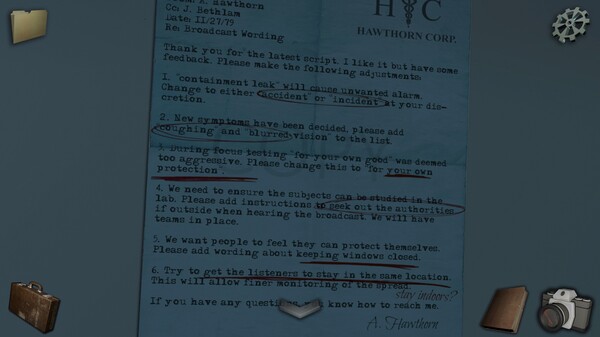 Hawthorn
Cc: J. Bethlam
Date: 11/27/79
Re: Broadcast Wording
H C
HAWTHORN CORP.
Thank you for the latest script. I like it but have some
feedback. Please make the following adjustments:
1. "containment leak" will cause unwanted alarm.
Change to either "accident" or "incident" at your dis-
cretion.
2. New symptoms have been decided, please add
"coughing" and "blurred vision" to the list.
3. During focus testing "for your own good" was deemed
too aggressive. Please change this to "for your own
protection".
4. We need to ensure the subjects can be studied in the
lab. Please add instructions to seek out the authorities
if outside when hearing the broadcast. We will have
teams in place.
5. We want people to feel they can protect themselves.
Please add wording about keeping windows closed.
6. Try to get the listeners to stay in the same location.
This will allow finer monitoring of the spread.
stay indoors?
If you have any questions, know how to reach me.
A. Hawthorn